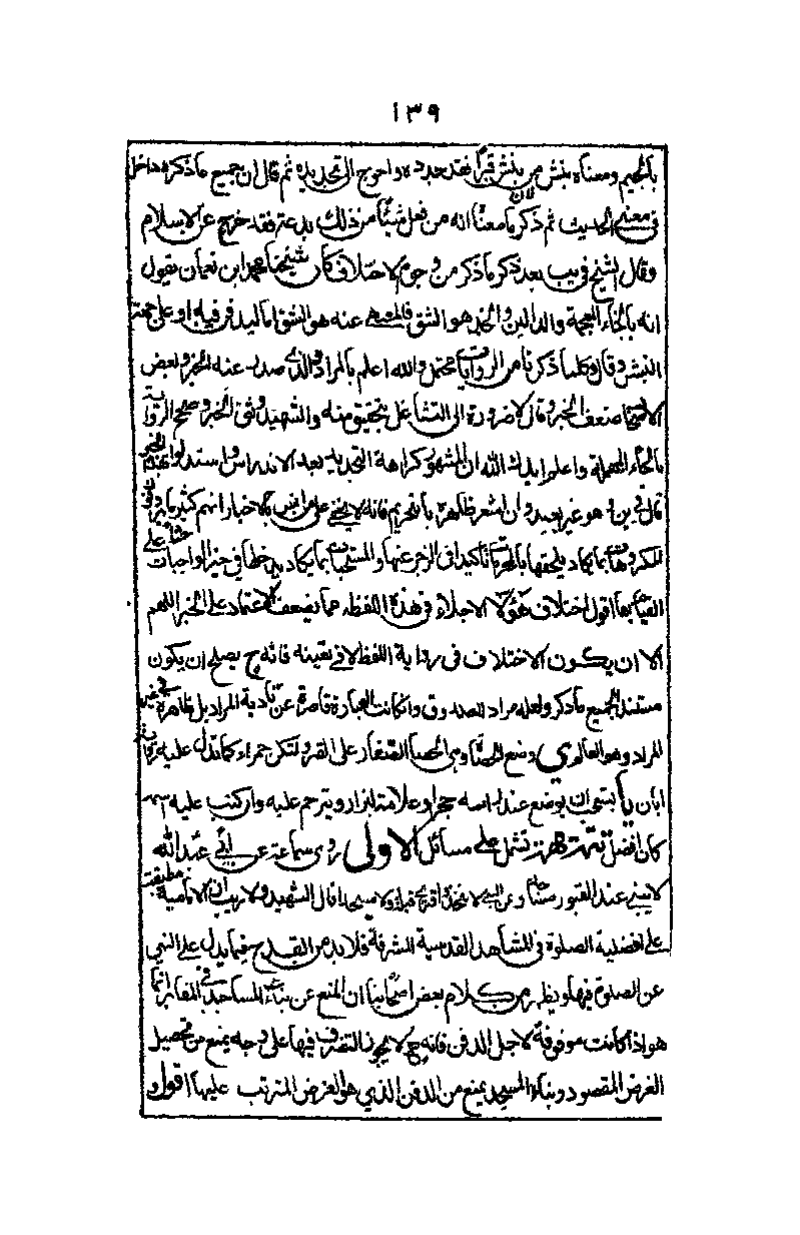 ١٣٩
بالجيم ومعناه ينبش من ينبش قبرا فقد جدده واحوج الى تجديده ثم قال ان جميع ما ذكره داخل
فى معنى الحديث ثم ذكر ما معناه انه من فعل شيئا من ذلك بدعة فقد خرج عن الاسلام
وقال الشيخ فى يب بعد ذكر ما ذكر من وجوه الاختلاف كان شيخنا محمد ابن نعمان يقول
انه بالخاء المعجمة والدالين والخد هو الشق عنه هو الشق اما ليدفن فيها او على جهة
النبش وقال وكلما ذكرنا من الروايات محتمل والله اعلم بالمراد والذى صدر عنه الخبر وبعض
الاصحاب ضعف الخبر وقال لا ضرورة الى التشاغل بتحقيق متنه والشهيد وثق الخبر وصحح الرواية
بالحاء المهملة واعلم ايدك الله ان المشهور كراهة التجديد بعد الاندراس واستدلوا بهذا الخبر
قال فى وهو غير بعيد وان اشعر ظاهره بالتحريم فانه لا يخفى على من انس بالاخبار انهم كثيرا ما يردفون
المكروهات بما يكاد يلحقها بالمحرمات تاكيدا فى الزجر عنها والمستحبات بما يكاد يدخلها فى حيز الواجبات حثا على
القيام بها اقول اختلاف هؤلاء الاجلاء فى هذه اللفظه مما يضعف الاعتماد على الخبر اللهم
الا ان يكون الاختلاف فى رواية اللفظ لا فى يقينه فانه ح يصلح ان يكون
مستند الجميع ما ذكر ولعله مراد الصدوق وان كانت العبارة قاصرة عن تادية المراد بل ظاهره فى غير
المراد وهو العالم وضع الحصباء وهى الحصا الصغار على القبر ولتكن حمراء كما تدل عليه رواية
ابان يا يستحب ان يوضع عند راسه حجر او علامة ليزار ويترحم عليه وان كتب عليه اسمه
كان افضل تتمة مهمة تشتمل على مسائل الاولى روى سماعة عن ابى عبد الله
لا يبنى عند القبور مساجد وعن النبى لا تتخذوا قبرى قبلة ولا مسجدا قال الشهيد ولا ريب ان الامامية مطبقة
على افضلية الصلوة فى المشاهد القدسية المشرفة فلا بد من القدح فيما يدل على النهى
عن الصلوة فيها ويظهر من كلام بعض اصحابنا ان المنع عن بناء المساجد فى المقابر انما
هو اذا كانت موقوفة لاجل الدفن فانه ح لا يجوز التصرف فيها على وجه يمنع من تحصيل
الغرض المقصود وبناء المسجد يمنع من الدفن الذى هو الغرض المترتب عليها اقول و